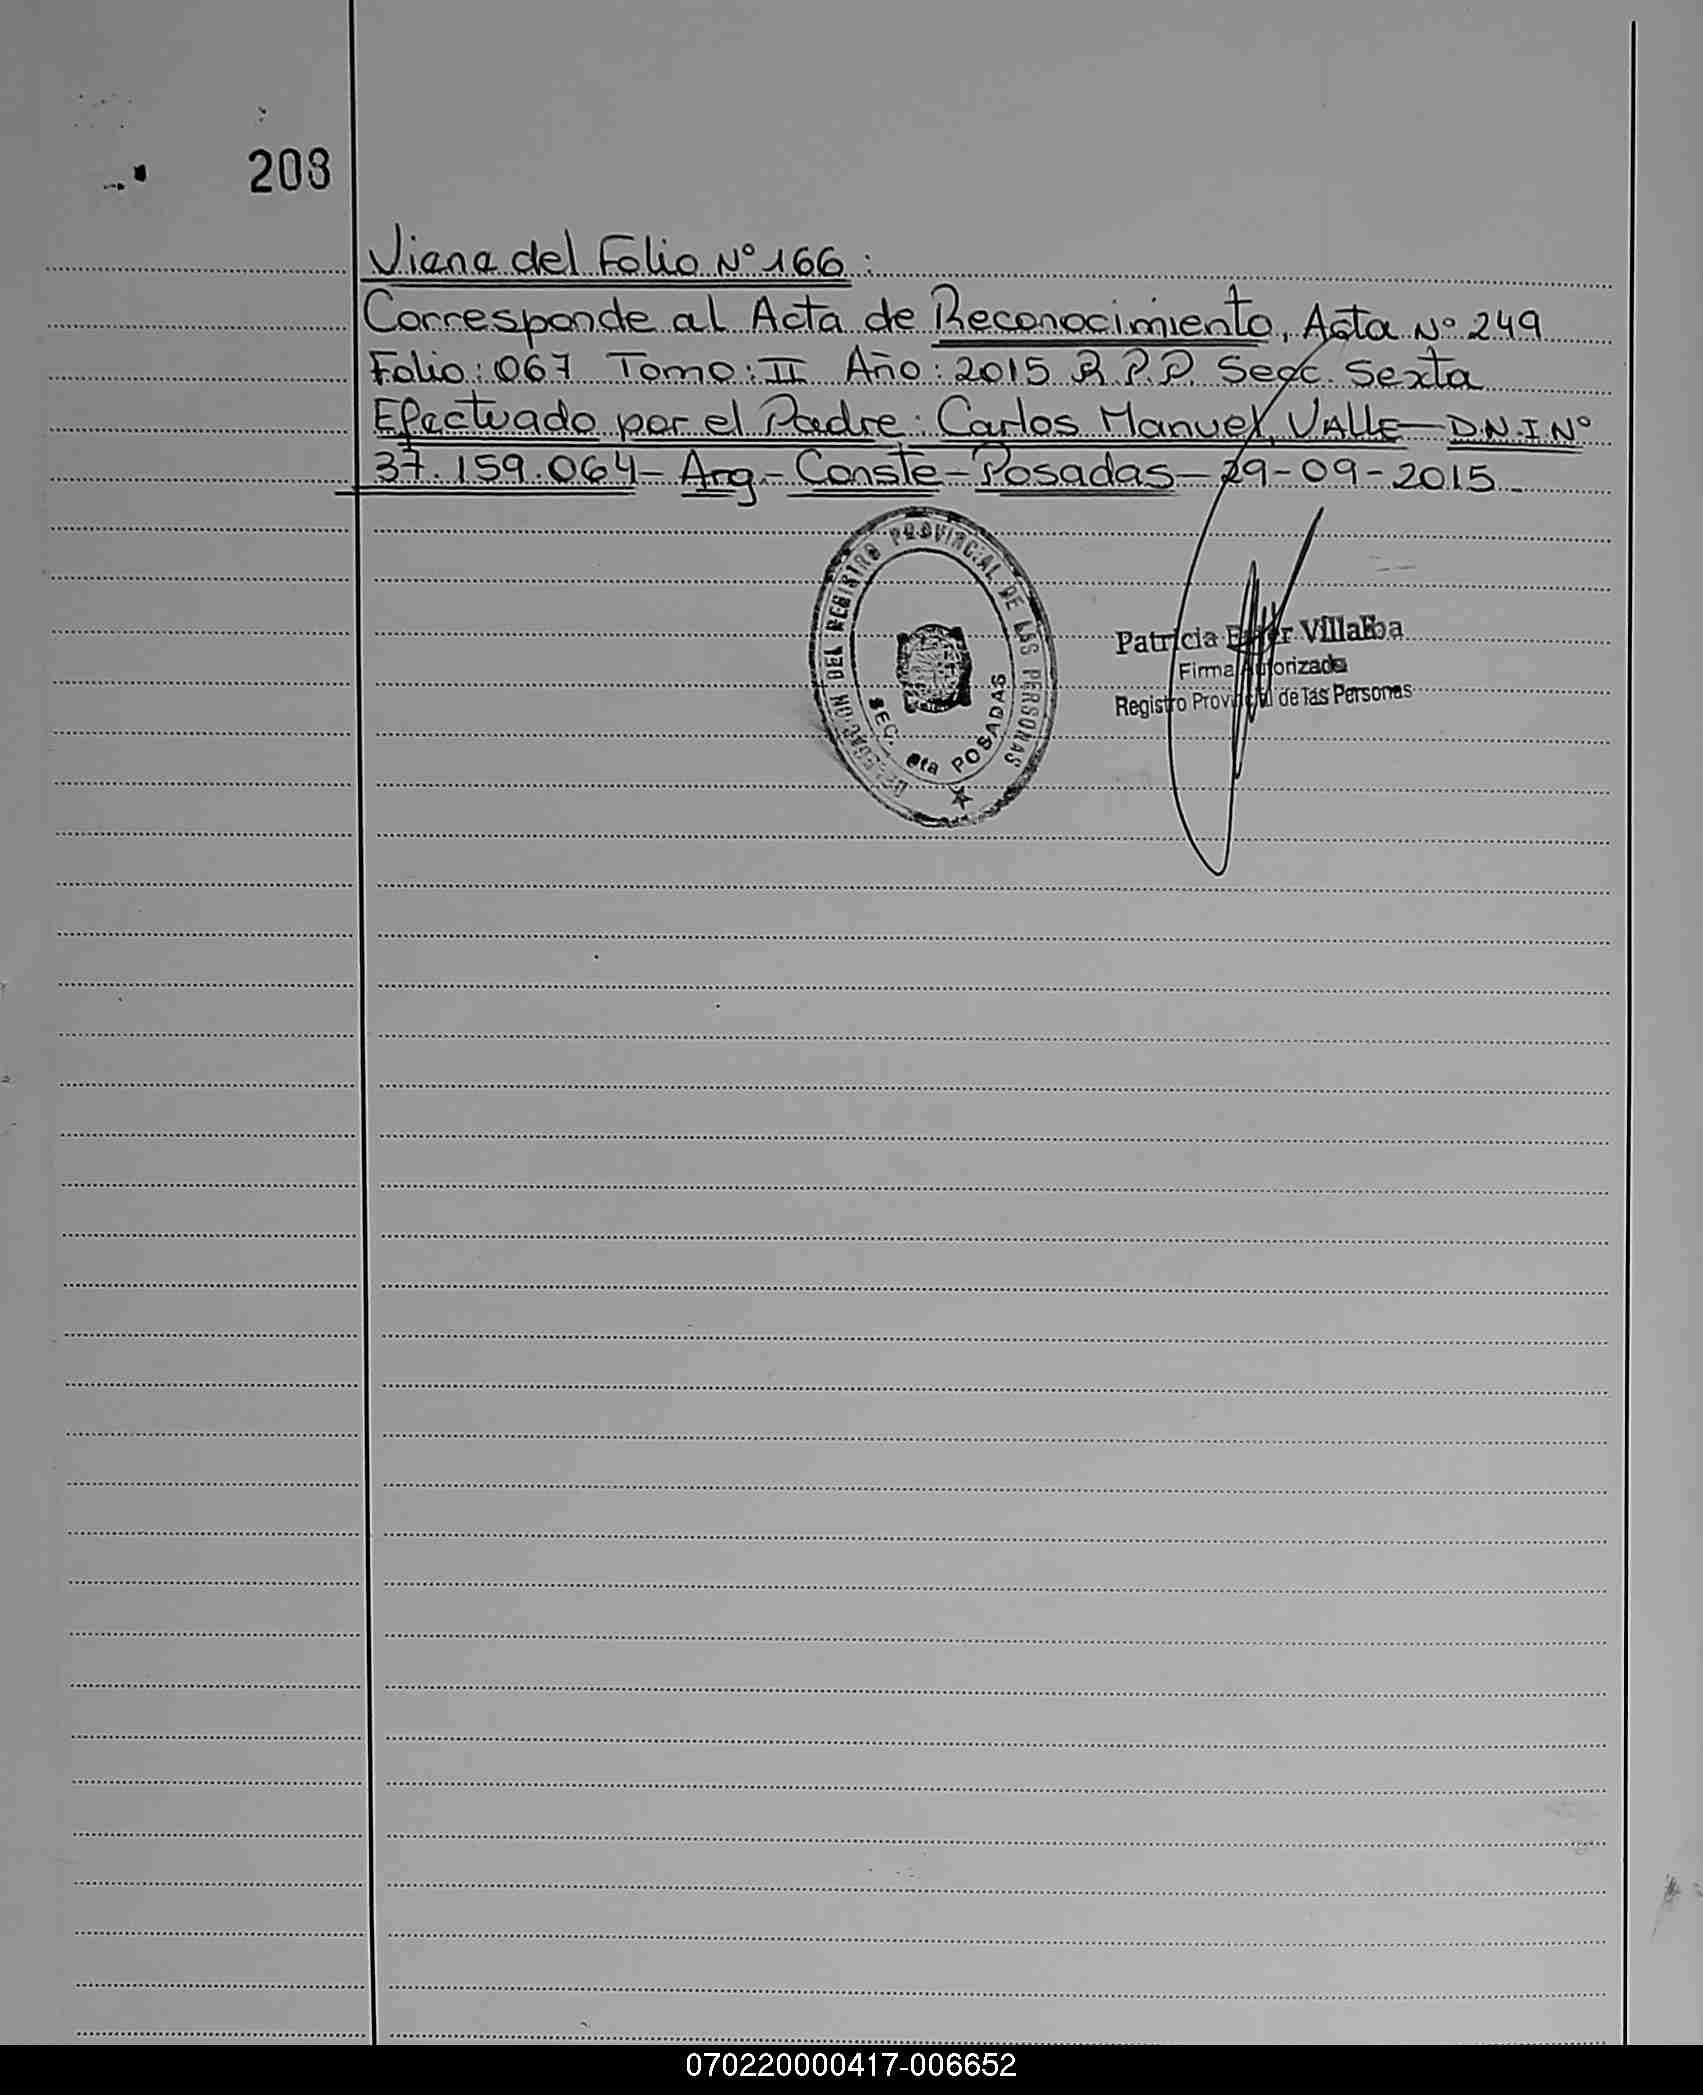 208
Viene del Folio Nº 166:
Corresponde al Acta de Reconocimiento, Acta Nº 249
Folio: 067 Tomo: II Año: 2015 R.P.P. Secc. Sexta
Efectuado por el Padre: Carlos Manuel, VALLE - D.N.I Nº
37.159.064 - Arg - Conste - Posadas - 29-09-2015
DELEGACION DEL REGISTRO PROVINCIAL DE LAS PERSONAS
SEC. 6ta POSADAS
Patricia Villalba
Firma Autorizada
Registro Provincial de las Personas
070220000417-006652